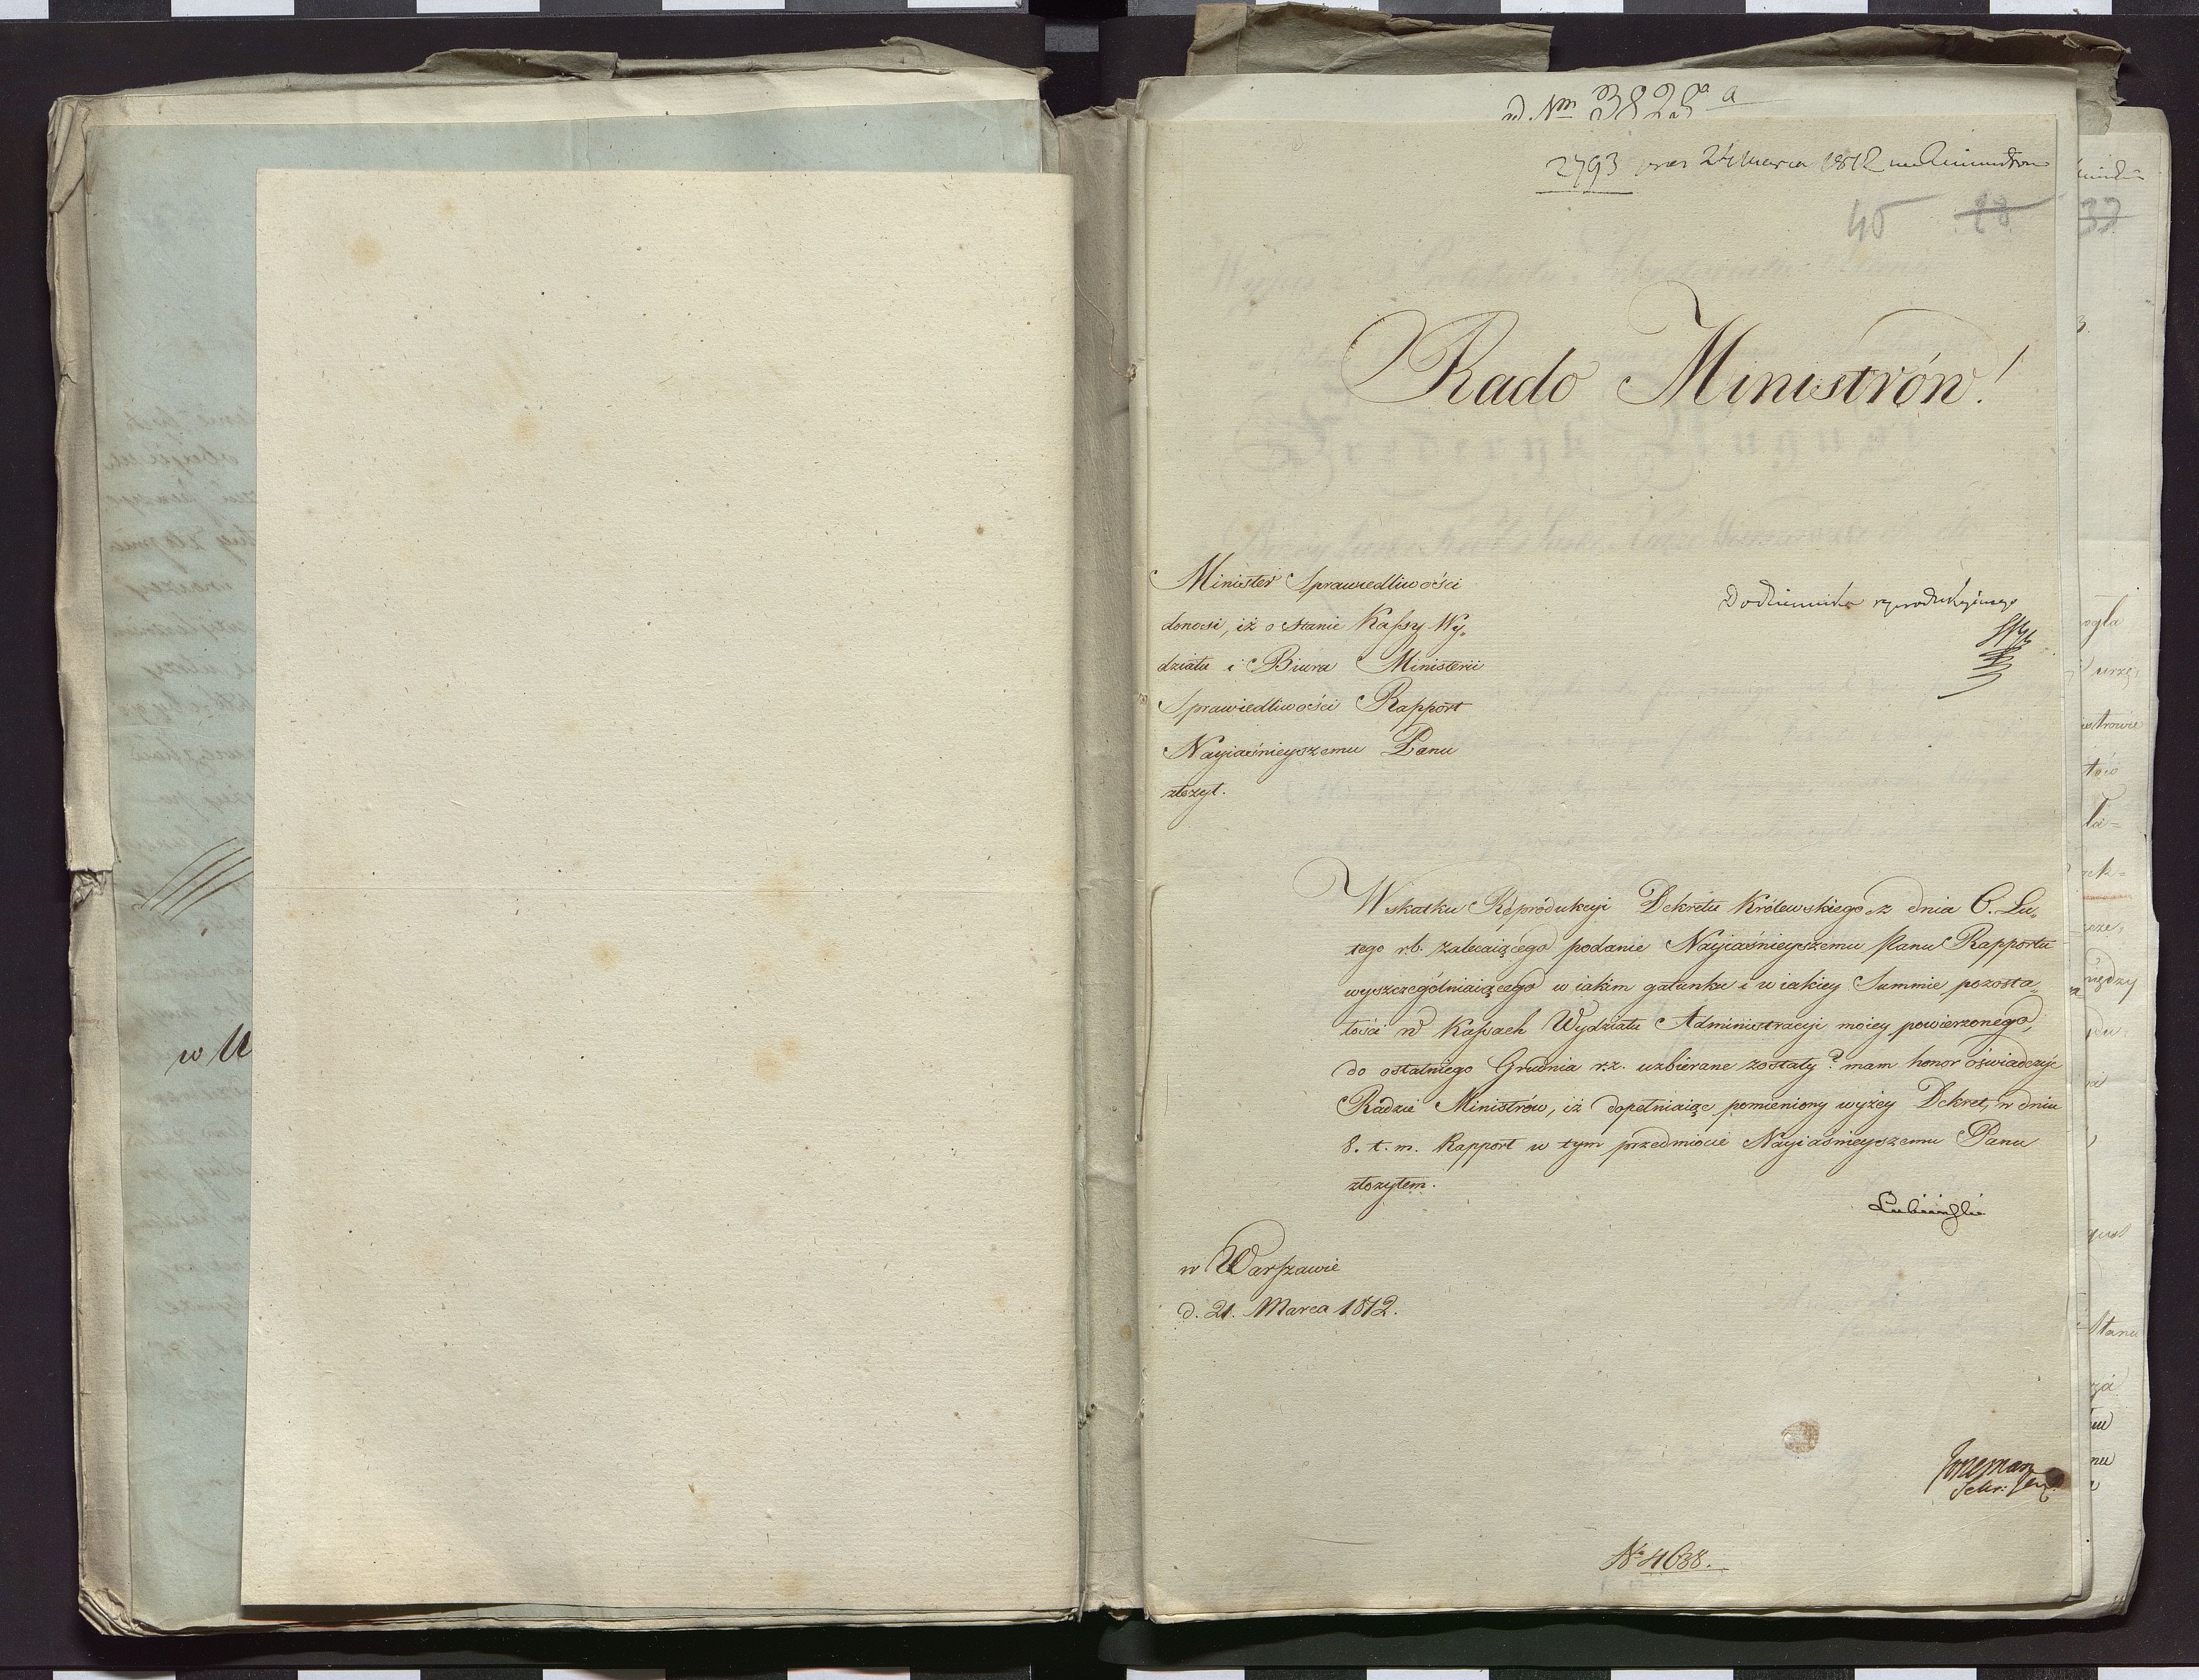 ad. Nm 3825 a
2793 24 Marca 1812
45 18
Rado Ministrów!
Minister Sprawiedliwości
donosi, iż o stanie Kassy Wy„
działu i Biura Ministerii
Sprawiedliwości Rapport
Nayiaśnieyszemu Panu
złożył.
Do Dziennika
Wskutku Reprodukcyi Dekretu Królewskiego z dnia 6. Lu„
tego r.b. zalecaiącego podanie Nayiaśnieyszemu Panu Rapportu
wyszczególniaiącego w iakim gatunku i w iakiey Summie pozosta„
łości w Kassach Wydziału Administracyi moiey powierzonego,
do ostatniego Grudnia r.z. uzbierane zostały? mam honor oświadczyć
Radzie Ministrów, iż dopełniaiąc pomieniony wyżey Dekret, w dniu
8. t. m. Rapport w tym przedmiocie Nayiaśnieyszemu Panu
złożyłem.
Lubieński
w Warszawie
d. 21. Marca 1812.
Sekr: Jen:
No 4638.
w